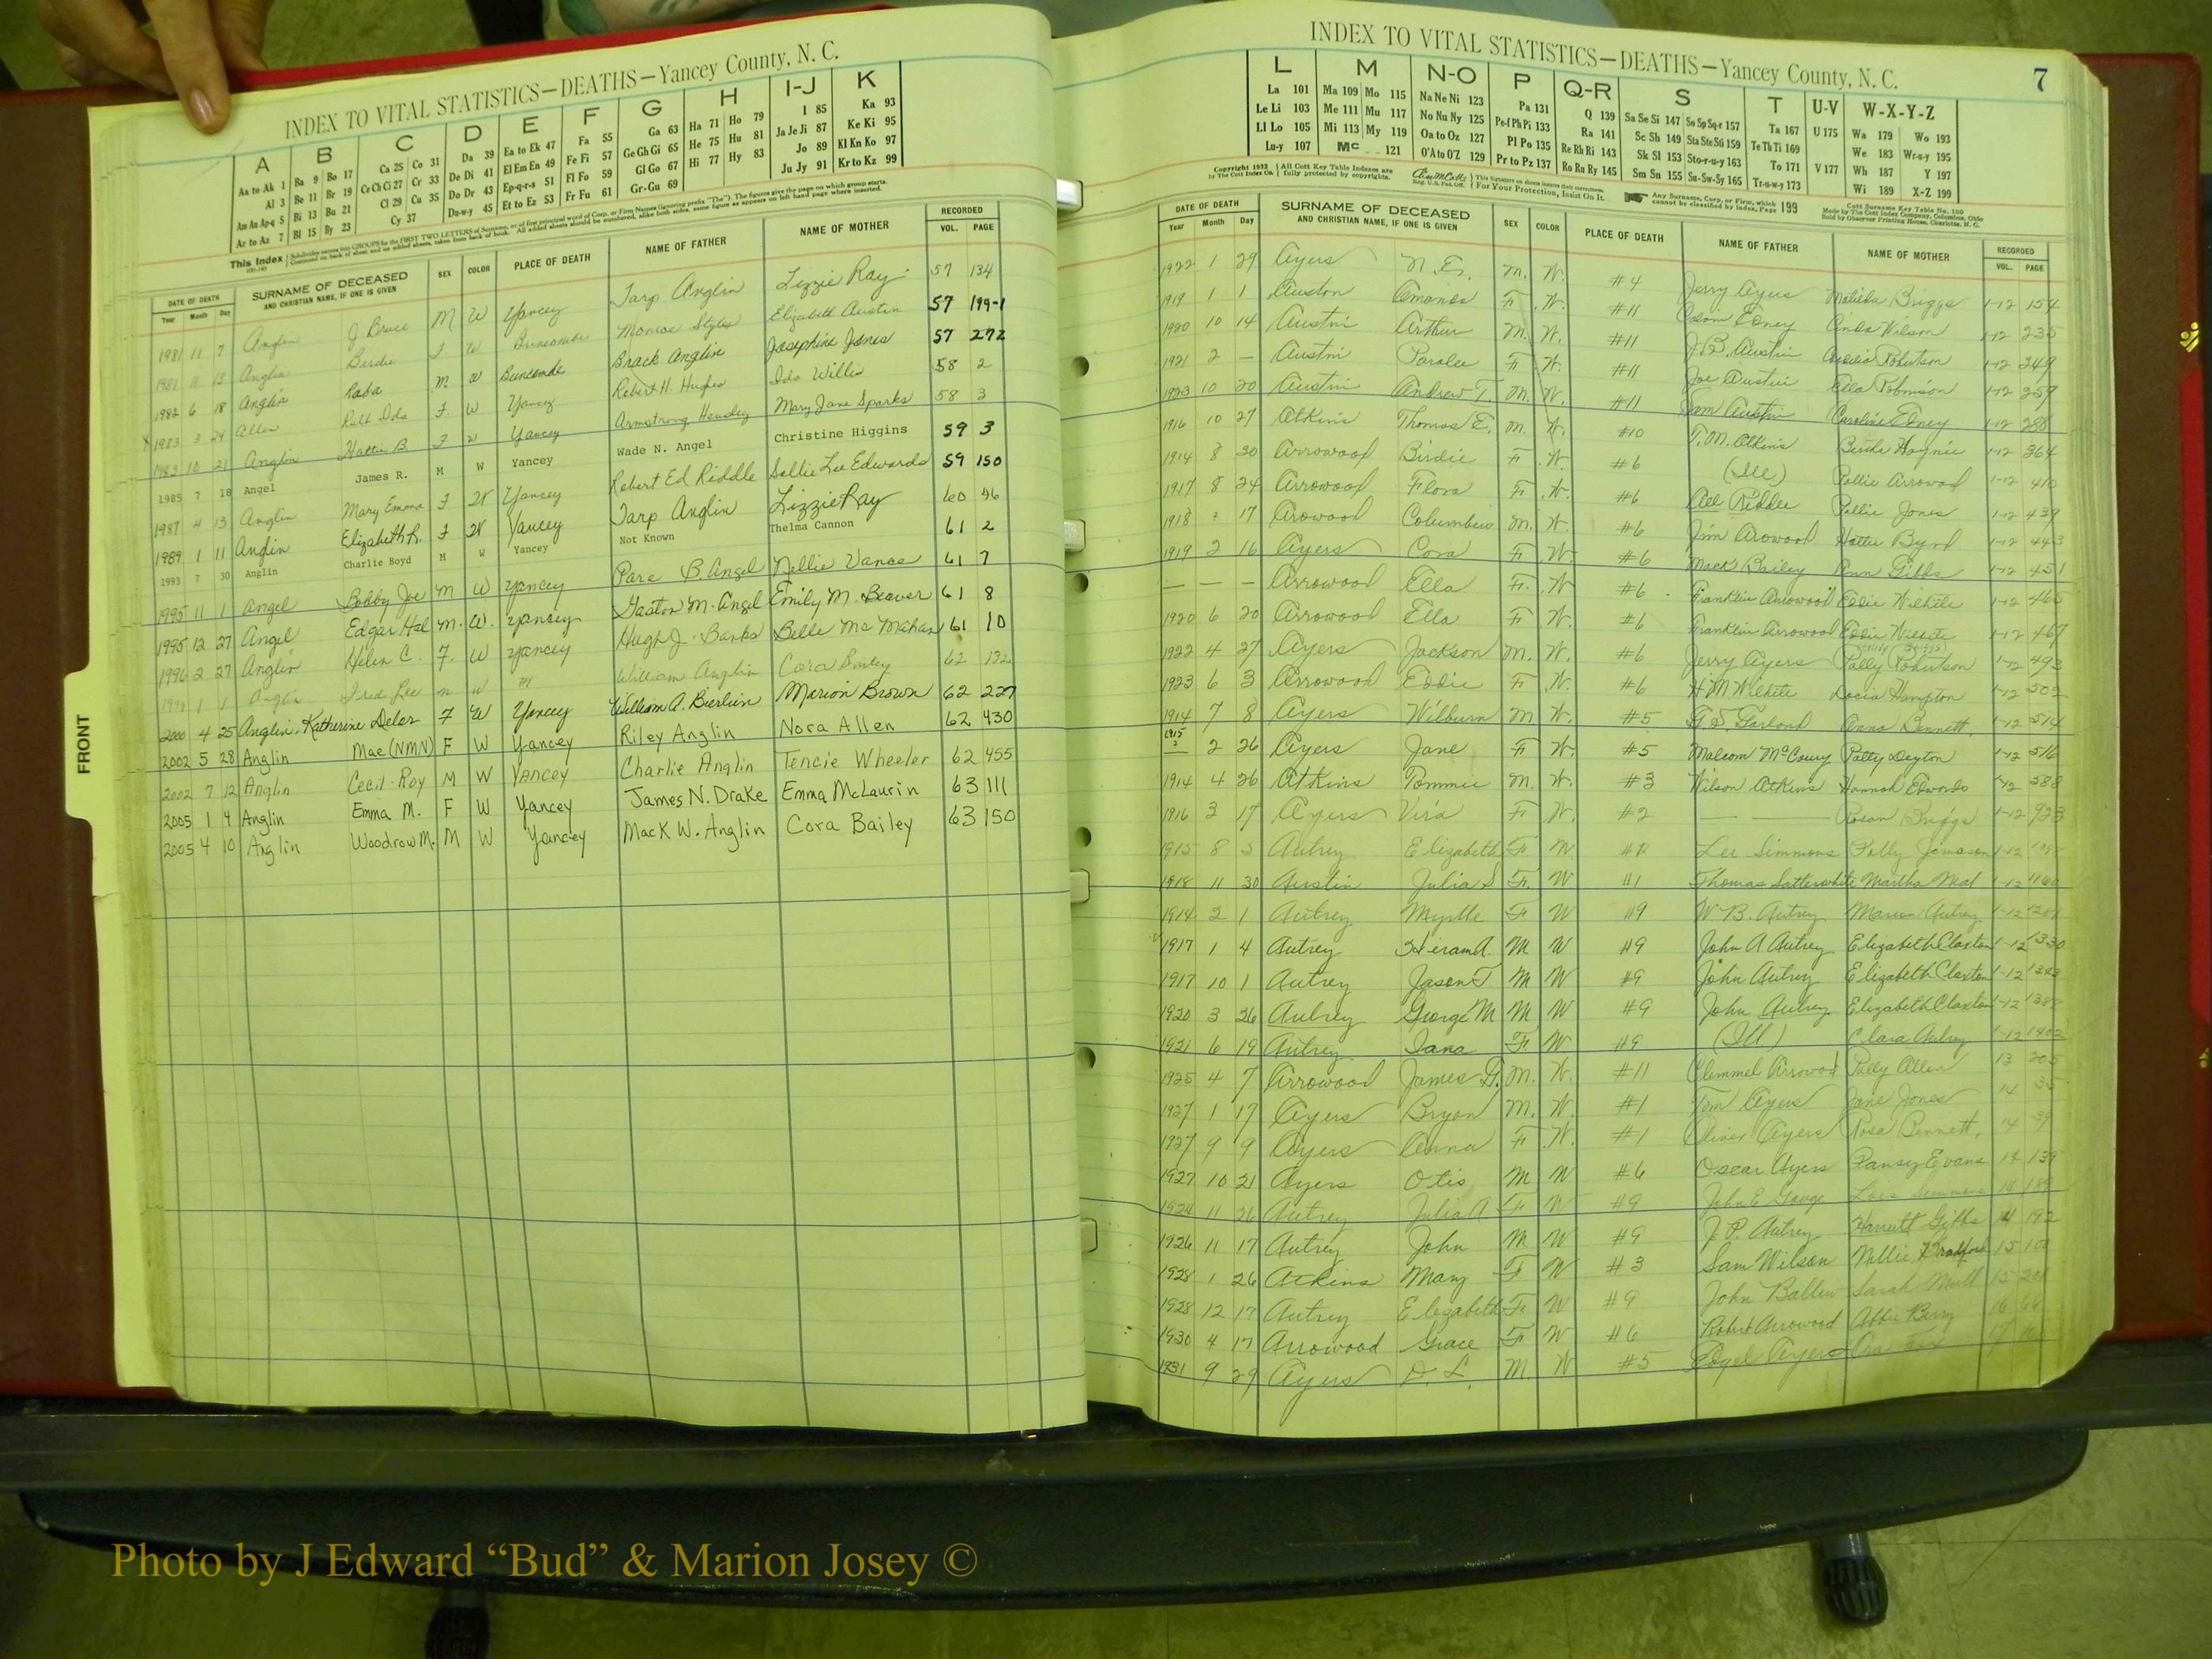 FRONT
INDEX TO VITAL STATISTICS—DEATHS—Yancey County, N. C.
A B C D E F G H I-J K
Aa to Ak 1 Ba 9 Bo 17 Ca 25 Co 31 Da 39 Ea to Ek 47 Fa 55 Ga 63 Ha 71 Ho 79 I 85 Ka 93
Al 3 Be 11 Br 19 Ce Ch Ci 27 Cr 33 De Di 41 El Em En 49 Fe Fi 57 Ge Gh Gi 65 He 75 Hu 81 Ja Je Ji 87 Ke Ki 95
Am An Ap-q 5 Bi 13 Bu 21 Cl 29 Cu 35 Do Dr 43 Ep-q-r-s 51 Fl Fo 59 Gl Go 67 Hi 77 Hy 83 Jo 89 Kl Kn Ko 97
Ar to Az 7 Bl 15 By 23 Cy 37 Du-w-y 45 Et to Ez 53 Fr Fu 61 Gr-Gu 69 Ju Jy 91 Kr to Kz 99
DATE OF DEATH SURNAME OF DECEASED SEX COLOR PLACE OF DEATH NAME OF FATHER NAME OF MOTHER RECORDED
Year Month Day AND CHRISTIAN NAME, IF ONE IS GIVEN VOL. PAGE
1981 11 7 Anglin J Bruce M W Yancey Tarp Anglin Lizzie Ray 57 134
1981 11 13 Anglin Birdie F W Buncombe Monroe Styles Elizabeth Austin 57 199-1
1982 6 18 Anglin Raba M W Buncombe Brack Anglin Josephine Jones 57 272
X 1983 3 24 Allen Ida F W Yancey Robert H. Hughes Ida Willis 58 2
1983 10 21 Anglin Hattie B F W Yancey Armstrong Hensley Mary Jane Sparks 58 3
1985 7 18 Angel James R. M W Yancey Wade N. Angel Christine Higgins 59 3
1987 4 13 Anglin Mary Emma F W Yancey Robert Ed Riddle Sallie Lee Edwards 59 150
1989 1 11 Anglin Elizabeth R. F W Yancey Tarp Anglin Lizzie Ray 60 56
1993 7 30 Anglin Charlie Boyd M W Yancey Not Known Thelma Cannon 61 2
1995 11 1 Angel Bobby Joe M W Yancey B. Angel Nellie Vance 61 7
1995 12 27 Angel Edgar Hal M. W. Yancey Gaston M. Angel Emily M. Beaver 61 8
1996 2 27 Anglin Helen C. F. W Yancey Hugh J. Banks Belle McMahan 61 10
1 1 Anglin Fred Lee M W William Anglin Cora Bailey 62 132
2000 4 25 Anglin, Katherine Delor F W Yancey William A. Bierlein Marion Brown 62 227
2002 5 28 Anglin Mae (NMN) F W Yancey Riley Anglin Nora Allen 62 430
2002 7 12 Anglin Cecil Roy M W Yancey Charlie Anglin Tencie Wheeler 62 455
2005 1 4 Anglin Emma M. F W Yancey James N. Drake Emma McLaurin 63 111
2005 4 10 Anglin Woodrow M. M W Yancey Mack W. Anglin Cora Bailey 63 150
INDEX TO VITAL STATISTICS—DEATHS—Yancey County, N. C. 7
L M N-O P Q-R S T U-V W-X-Y-Z
La 101 Ma 109 Mo 115 Na Ne Ni 123 Pa 131 Q 139 Sa Se Si 147 So Sp Sq-r 157 Ta 167 U 175 Wa 179 Wo 193
Le Li 103 Me 111 Mu 117 No Nu Ny 125 Pe-f Ph Pi 133 Ra 141 Sc Sh 149 Sta Ste Sti 159 Te Th Ti 169 We 183 Wr-u-y 195
Ll Lo 105 Mi 113 My 119 Oa to Oz 127 Pl Po 135 Re Rh Ri 143 Sk Sl 153 Sto-r-u-y 163 To 171 V 177 Wh 187 Y 197
Lu-y 107 Mc 121 O'A to O'Z 129 Pr to Pz 137 Ro Ru Ry 145 Sm Sn 155 Su-Sw-Sy 165 Tr-u-w-y 173 Wi 189 X-Z 199
DATE OF DEATH SURNAME OF DECEASED SEX COLOR PLACE OF DEATH NAME OF FATHER NAME OF MOTHER RECORDED
Year Month Day AND CHRISTIAN NAME, IF ONE IS GIVEN VOL. PAGE
1922 1 29 Ayers N. E. M. W. #4 Jerry Ayers Matilda Briggs 1-12 154
1919 1 1 Auston Amanda F. W. #11 Edney Wilson 1-12 235
1920 10 14 Austin Arthur M. W. #11 J. B. Austin Robertson 1-12 249
1921 2 — Austin Paralee F W. #11 Joe Austin Ella Robinson 1-12 259
1923 10 20 Austin Andrew T. M. W. #11 Sam Austin Caroline Edney 1-12 288
1916 10 27 Atkins Thomas E. M. W. #10 T. M. Atkins Haynie 1-12 364
1914 8 30 Arrowood Birdie F. W. #6 (Ill) Pollie Arrowood 1-12 410
1917 8 24 Arrowood Flora F. W. #6 Riddle Pollie Jones 1-12 439
1918 2 17 Arowood Columbus M. W. #6 Jim Arowood Hattie Byrd 1-12 443
1919 2 16 Ayers Cora F. W. #6 Mack Bailey Ann Gibbs 1-12 451
— — — Arrowood Ella F. W. #6 Franklin Arrowood Eddie Wilhite 1-12 465
1920 6 20 Arrowood Ella F W. #6 Franklin Arrowood Eddie Wilhite 1-12 467
1922 4 27 Ayers Jackson M. W. #6 Jerry Ayers Polly Robertson 1-12 493
1923 6 3 Arrowood Eddie F W. #6 H M Wilhite Docia Hampton 1-12 502
1914 7 8 Ayers Wilburn M W. #5 G. S. Garland Anna Bennett 1-12 514
1915 2 26 Ayers Jane F W. #5 Malcom McCoury Patty Deyton 1-12 516
1914 4 26 Atkins Tommie M. W. #3 Wilson Atkins Hannah Edwards 1-12 588
1916 3 17 Ayers Vira F W. #2 — — Rosan Briggs 1-12 923
1915 8 5 Autrey Elizabeth F W Lee Simmons Polly 1-12
1918 11 30 Austin Julia S F. W #1 Thomas Satterwhite Martha Neal 1-12 1160
1914 2 1 Autrey Myrtle F W #9 W. B. Autrey Marion Autrey 1-12
1917 1 4 Autrey Hiram A. M W #9 John A Autrey Elizabeth Claxton 1-12 1330
1917 10 1 Autrey Jason T M W #9 John Autrey Elizabeth Claxton 1-12 1343
1920 3 26 Autrey George M M W #9 John Autrey Elizabeth Claxton 1-12 1388
1921 6 19 Autrey Iana F W #9 (Ill) Clara Autrey 1-12 1402
1925 4 7 Arrowood James D. M. W. #11 Clemmel Arrowood Polly Allen 13 205
1927 1 17 Ayers Bryon M. W. #1 Tom Ayers Jane Jones 14 35
1927 9 9 Ayers Anna F. W. #1 Oliver Ayers Rosa Bennett 14 39
1927 10 21 Ayers Otis M W #6 Oscar Ayers Pansy Evans 14 139
1924 11 26 Autrey Julia A F W #9 John E Gouge Lois Simmons 14 189
1926 11 17 Autrey John M W #9 J. P. Autrey Harriett Gibbs 14 192
1928 1 26 Atkins Mary F W #3 Sam Wilson Nellie Bradford 15 101
1928 12 17 Autrey Elizabeth F W #9 John Ballew Sarah 15 201
1930 4 17 Arrowood Grace F W #6 Robert Arrowood Abbie Berry 16 66
1931 9 29 Ayers D. L. M. W #5 Ayers Ora Fox 17
Photo by J Edward “Bud” & Marion Josey ©